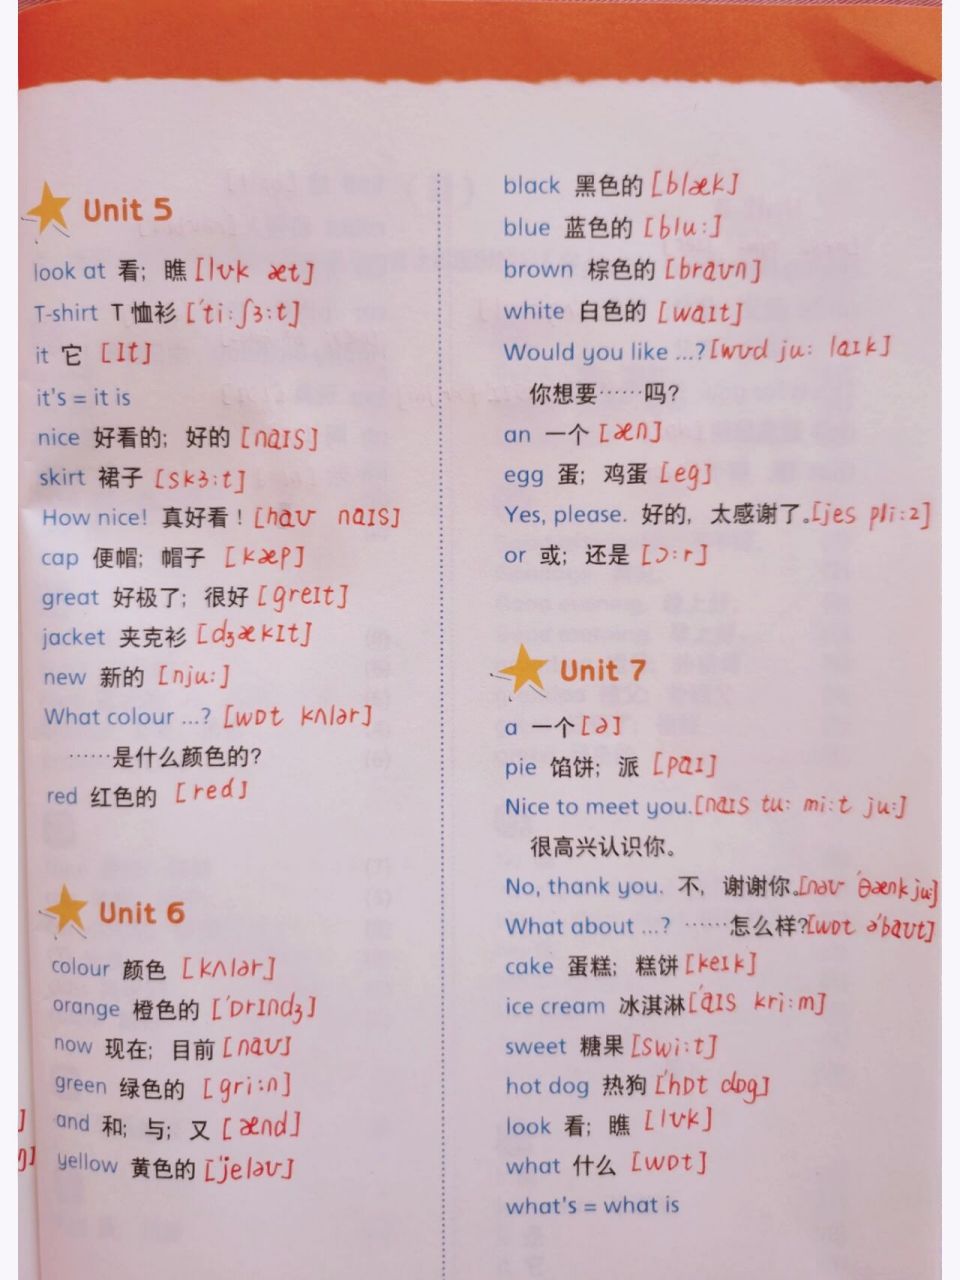 Unit 5
look at 看；瞧 [lʊk æt]
T-shirt T恤衫 ['ti:ʃɜ:t]
it 它 [ɪt]
it's = it is
nice 好看的；好的 [naɪs]
skirt 裙子 [skɜ:t]
How nice! 真好看！ [haʊ naɪs]
cap 便帽；帽子 [kæp]
great 好极了；很好 [greɪt]
jacket 夹克衫 [dʒækɪt]
new 新的 [nju:]
What colour ...? [wɒt kʌlər]
……是什么颜色的?
red 红色的 [red]
Unit 6
colour 颜色 [kʌlər]
orange 橙色的 ['ɒrɪndʒ]
now 现在；目前 [naʊ]
green 绿色的 [gri:n]
and 和；与；又 [ænd]
yellow 黄色的 ['jeləʊ]
black 黑色的 [blæk]
blue 蓝色的 [blu:]
brown 棕色的 [braʊn]
white 白色的 [waɪt]
Would you like ...? [wʊd ju: laɪk]
你想要……吗?
an 一个 [æn]
egg 蛋；鸡蛋 [eg]
Yes, please. 好的，太感谢了。[jes pli:z]
or 或；还是 [ɔ:r]
Unit 7
a 一个 [ə]
pie 馅饼；派 [paɪ]
Nice to meet you. [naɪs tu: mi:t ju:]
很高兴认识你。
No, thank you. 不，谢谢你。[nəʊ 'θænk ju:]
What about ...? ……怎么样? [wɒt ə'baʊt]
cake 蛋糕；糕饼 [keɪk]
ice cream 冰淇淋 ['aɪs kri:m]
sweet 糖果 [swi:t]
hot dog 热狗 ['hɒt dɒg]
look 看；瞧 [lʊk]
what 什么 [wɒt]
what's = what is